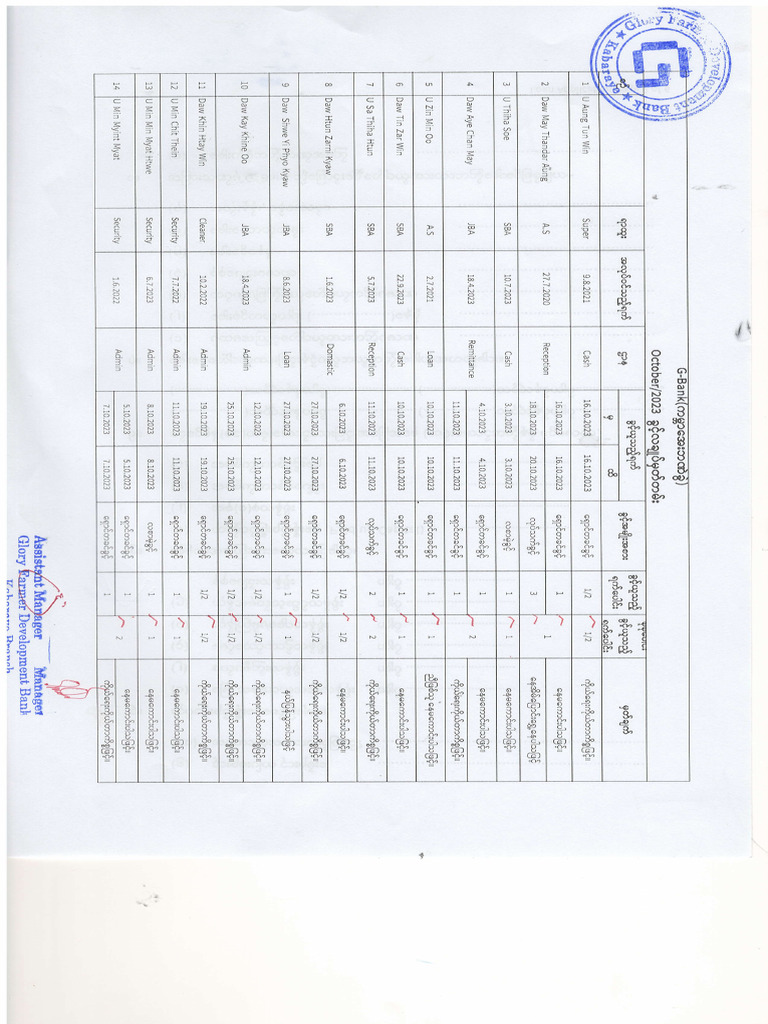 Glory Farmer Development Bank
★ Kabaraye ★
G-Bank(ကမ္ဘာအေးဘဏ်ခွဲ)
October/2023 ခွင့်လချုပ်မှတ်တမ်း
ရာထူး အလုပ်ဝင်သည့်ရက် ဌာန ခွင့်ယူသည့်ရက် ခွင့်အမျိုးအစား ခွင့်ယူသည့် ရက်ပေါင်း ခွင့်ယူသည့် ရက်ပေါင်း မှတ်ချက်
မှ ထိ
1 U Aung Tun Win Super 9.8.2021 Cash 16.10.2023 16.10.2023 ရှောင်တခင်ခွင့် 1/2 1/2 ကိုယ်ရေးကိုယ်တာကိစ္စဖြင့်။
2 Daw May Thandar Aung A.S 27.7.2020 Reception 16.10.2023 16.10.2023 ရှောင်တခင်ခွင့် 1 1 နေမကောင်းပါသဖြင့်
18.10.2023 20.10.2023 လုပ်သက်ခွင့် 3
3 U Thiha Soe SBA 10.7.2023 Cash 3.10.2023 3.10.2023 လစာမဲ့ခွင့် 1 1 နေမကောင်းပါသဖြင့်
4 Daw Aye Chan May JBA 18.4.2023 Remittance 4.10.2023 4.10.2023 ရှောင်တခင်ခွင့် 1 2 နေမကောင်းပါသဖြင့်။
11.10.2023 11.10.2023 ရှောင်တခင်ခွင့် 1 ကိုယ်ရေးကိုယ်တာကိစ္စဖြင့်။
5 U Zin Min Oo A.S 2.7.2021 Loan 10.10.2023 10.10.2023 ရှောင်တခင်ခွင့် 1 1 ညီဖြစ်သူ နေမကောင်းပါသဖြင့်။
6 Daw Tin Zar Win SBA 22.9.2023 Cash 10.10.2023 10.10.2023 ရှောင်တခင်ခွင့် 1 1 နေမကောင်းပါသဖြင့်။
7 U Sa Thiha Htun SBA 5.7.2023 Reception 11.10.2023 11.10.2023 လုပ်သက်ခွင့် 2 2 ကိုယ်ရေးကိုယ်တာကိစ္စဖြင့်။
8 Daw Htun Zarni Kyaw SBA 1.6.2023 Domastic 6.10.2023 6.10.2023 ရှောင်တခင်ခွင့် 1/2 1/2 နေမကောင်းပါသဖြင့်။
27.10.2023 27.10.2023 ရှောင်တခင်ခွင့် 1/2 1/2 ကိုယ်ရေးကိုယ်တာကိစ္စဖြင့်။
9 Daw Shwe Yi Phyo Kyaw JBA 8.6.2023 Loan 27.10.2023 27.10.2023 ရှောင်တခင်ခွင့် 1 1 နယ်ပြန်သွားပါသဖြင့်
10 Daw Kay Khine Oo JBA 18.4.2023 Admin 12.10.2023 12.10.2023 ရှောင်တခင်ခွင့် 1/2 1/2 ကိုယ်ရေးကိုယ်တာကိစ္စဖြင့်။
25.10.2023 25.10.2023 ရှောင်တခင်ခွင့် 1/2 1/2 ကိုယ်ရေးကိုယ်တာကိစ္စဖြင့်။
11 Daw Khin Htay Win Cleaner 10.2.2022 Admin 19.10.2023 19.10.2023 ရှောင်တခင်ခွင့် 1/2 1/2 ကိုယ်ရေးကိုယ်တာကိစ္စဖြင့်။
12 U Min Chit Thein Security 7.7.2022 Admin 11.10.2023 11.10.2023 ရှောင်တခင်ခွင့် 1 1 နေမကောင်းပါသဖြင့်။
13 U Min Min Myat Htwe Security 6.7.2023 Admin 8.10.2023 8.10.2023 လစာမဲ့ခွင့် 1 1 နေမကောင်းပါသဖြင့်။
14 U Min Myint Myat Security 1.6.2022 Admin 5.10.2023 5.10.2023 ရှောင်တခင်ခွင့် 1 2 နေမကောင်းပါသဖြင့်။
7.10.2023 7.10.2023 ရှောင်တခင်ခွင့် 1 ကိုယ်ရေးကိုယ်တာကိစ္စဖြင့်။
Assistant Manager Manager
Glory Farmer Development Bank
Kabaraye Branch